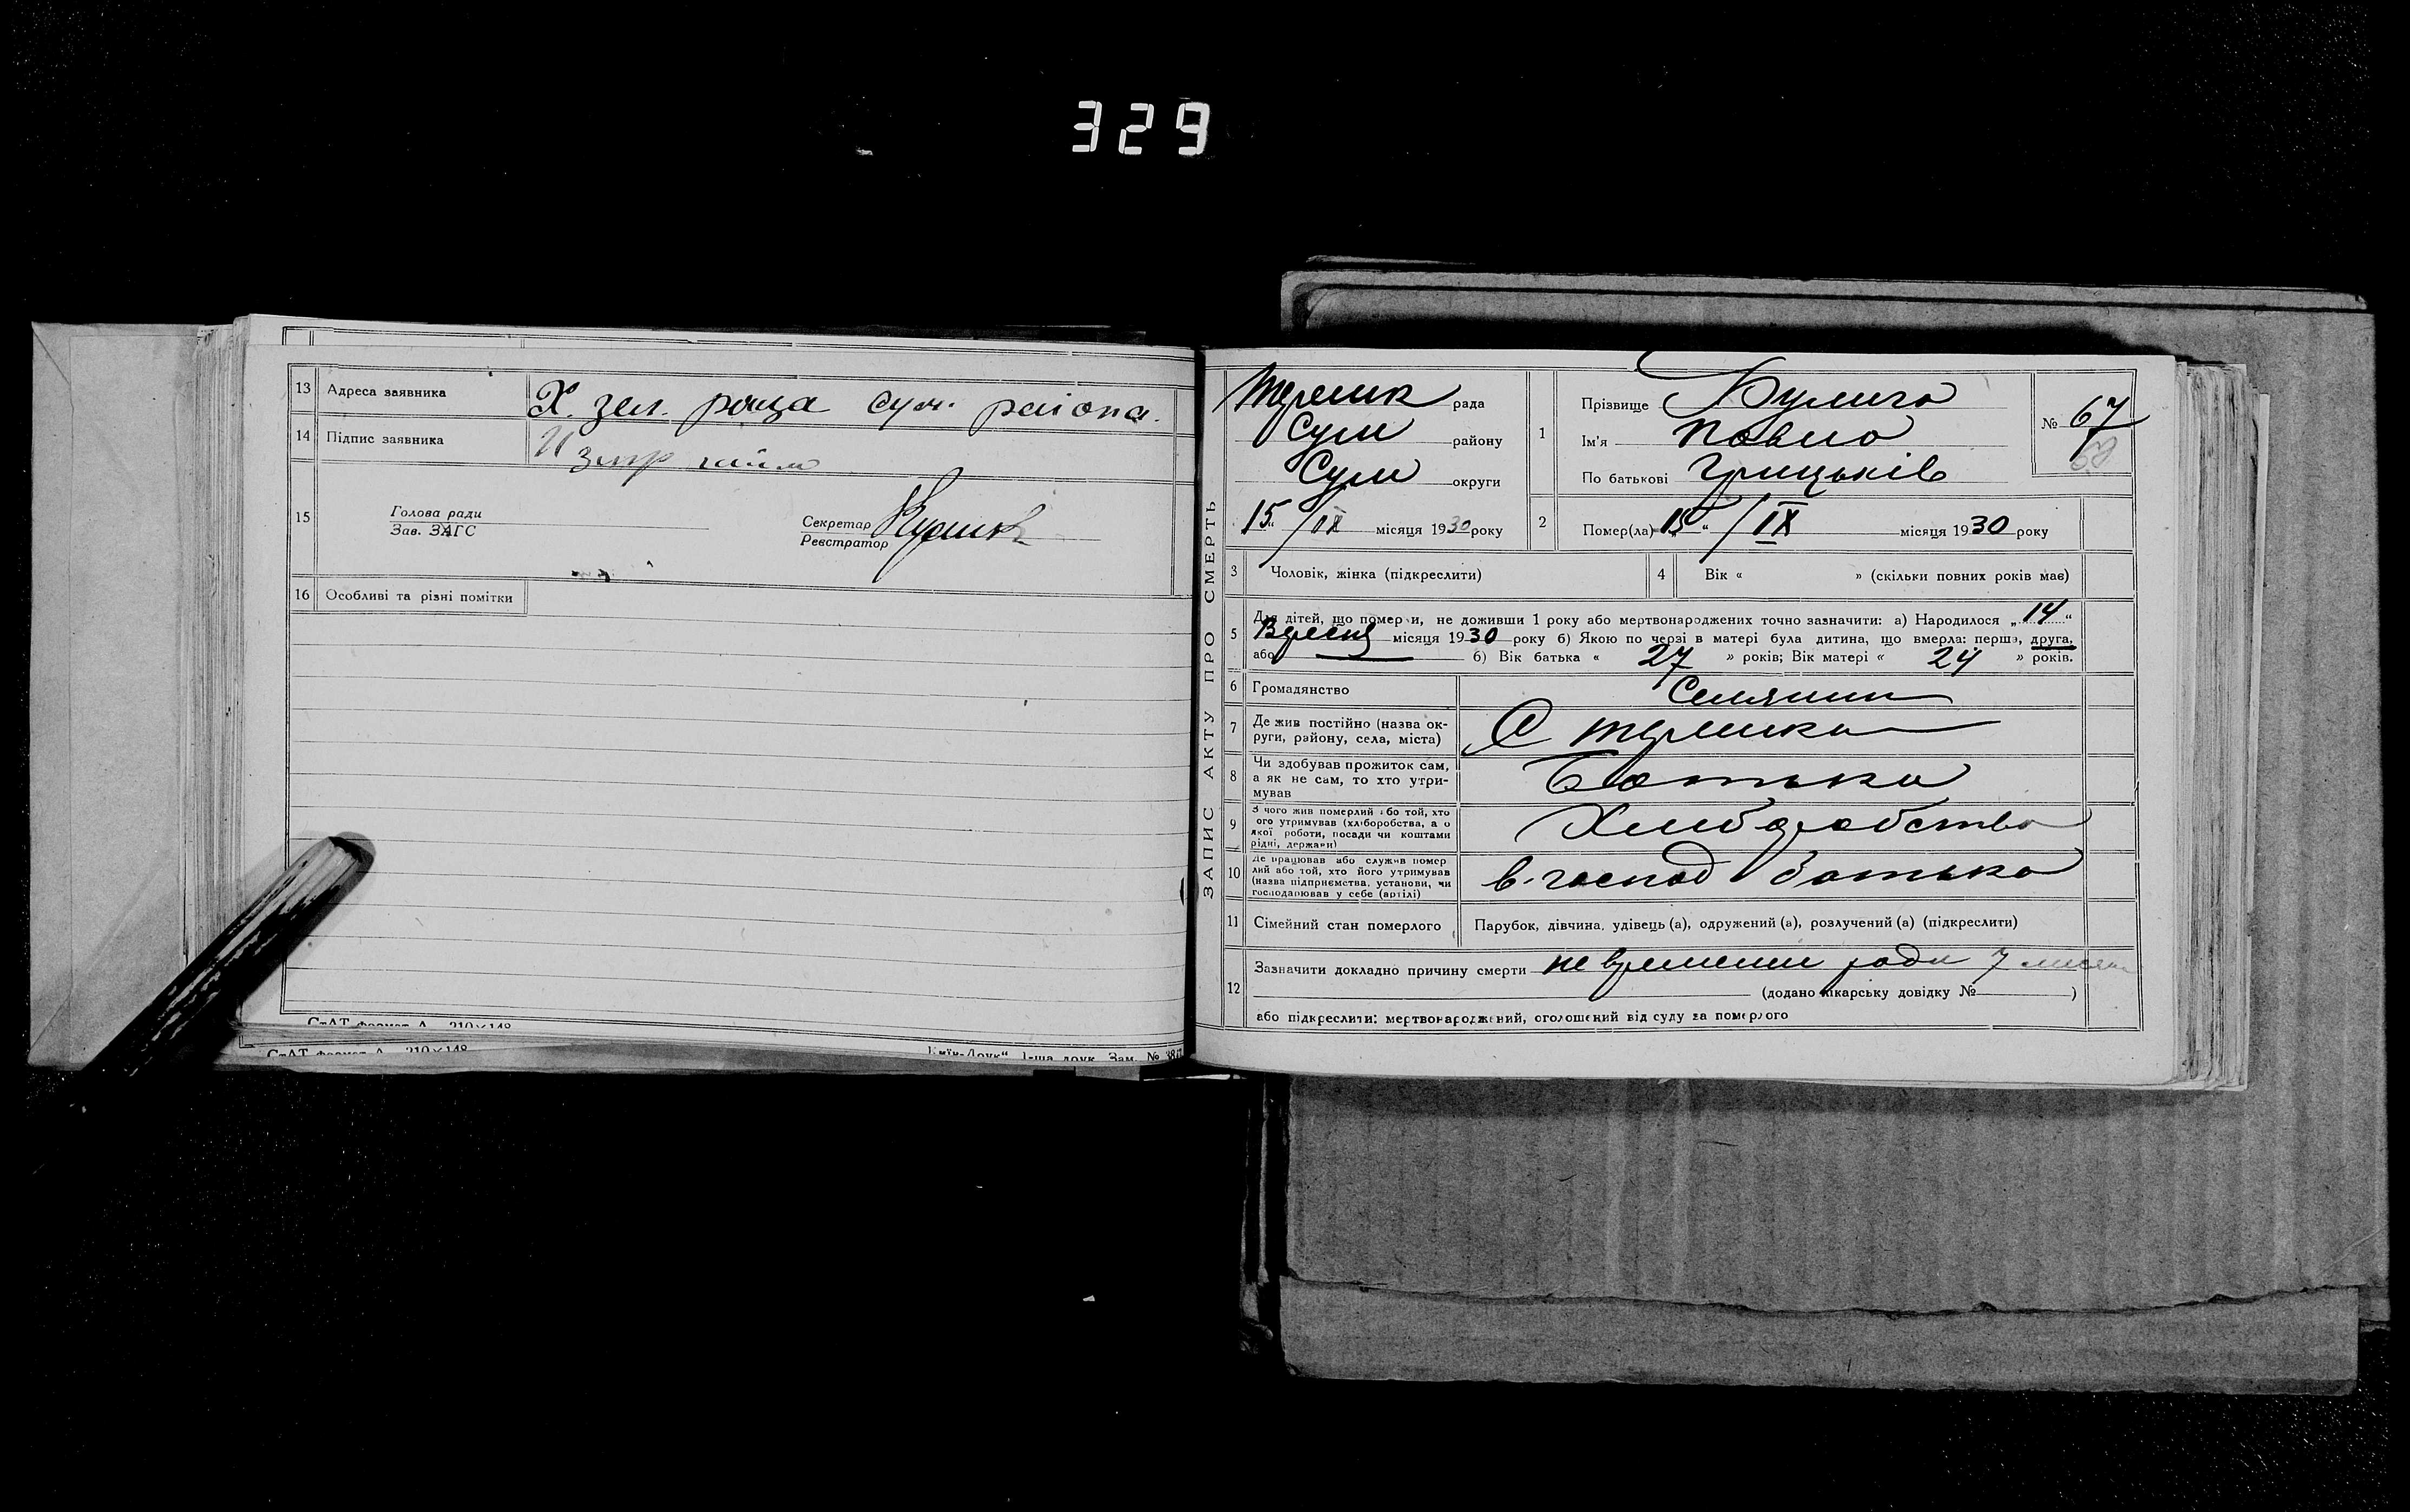 329
13 Адреса заявника Х. зел. роща сум. района.
14 Підпис заявника
15 Голова ради
Зав. ЗАГС
Секретар
Реєстратор
16 Особливі та різні помітки
СтАТ формат А 210×148
СтАТ формат А 210×148
1-ша друк. Зам. №
ЗАПИС АКТУ ПРО СМЕРТЬ
рада
Сум району
Сум округи
15 " / IX місяця 1930 року
1 Прізвище
Ім'я Павло
По батькові Грицьків
№ 67
2 Помер(ла) 15 " / IX місяця 1930 року
3 Чоловік, жінка (підкреслити)
4 Вік « » (скільки повних років має)
5 Для дітей, що померли, не доживши 1 року або мертвонароджених точно зазначити: а) Народилося „ 14 “
Вересня місяця 1930 року б) Якою по черзі в матері була дитина, що вмерла: перша, друга,
або б) Вік батька « 27 » років; Вік матері « 24 » років.
6 Громадянство Селянин
7 Де жив постійно (назва ок-
руги, району, села, міста)
С
8 Чи здобував прожиток сам,
а як не сам, то хто утри-
мував
Батько
9 З чого жив померлий або той, хто
його утримував (хліборобства, а о
якої роботи, посади чи коштами
рідні, держави)
Хліборобство
10 Де працював або служив помер
лий або той, хто його утримував
(назва підприємства, установи, чи
господарював у себе (артілі)
в господ батька
11 Сімейний стан померлого Парубок, дівчина, удівець (а), одружений (а), розлучений (а) (підкреслити)
12 Зазначити докладно причину смерти роди 7
(додано лікарську довідку № )
або підкреслити: мертвонароджений, оголошений від суду за померлого